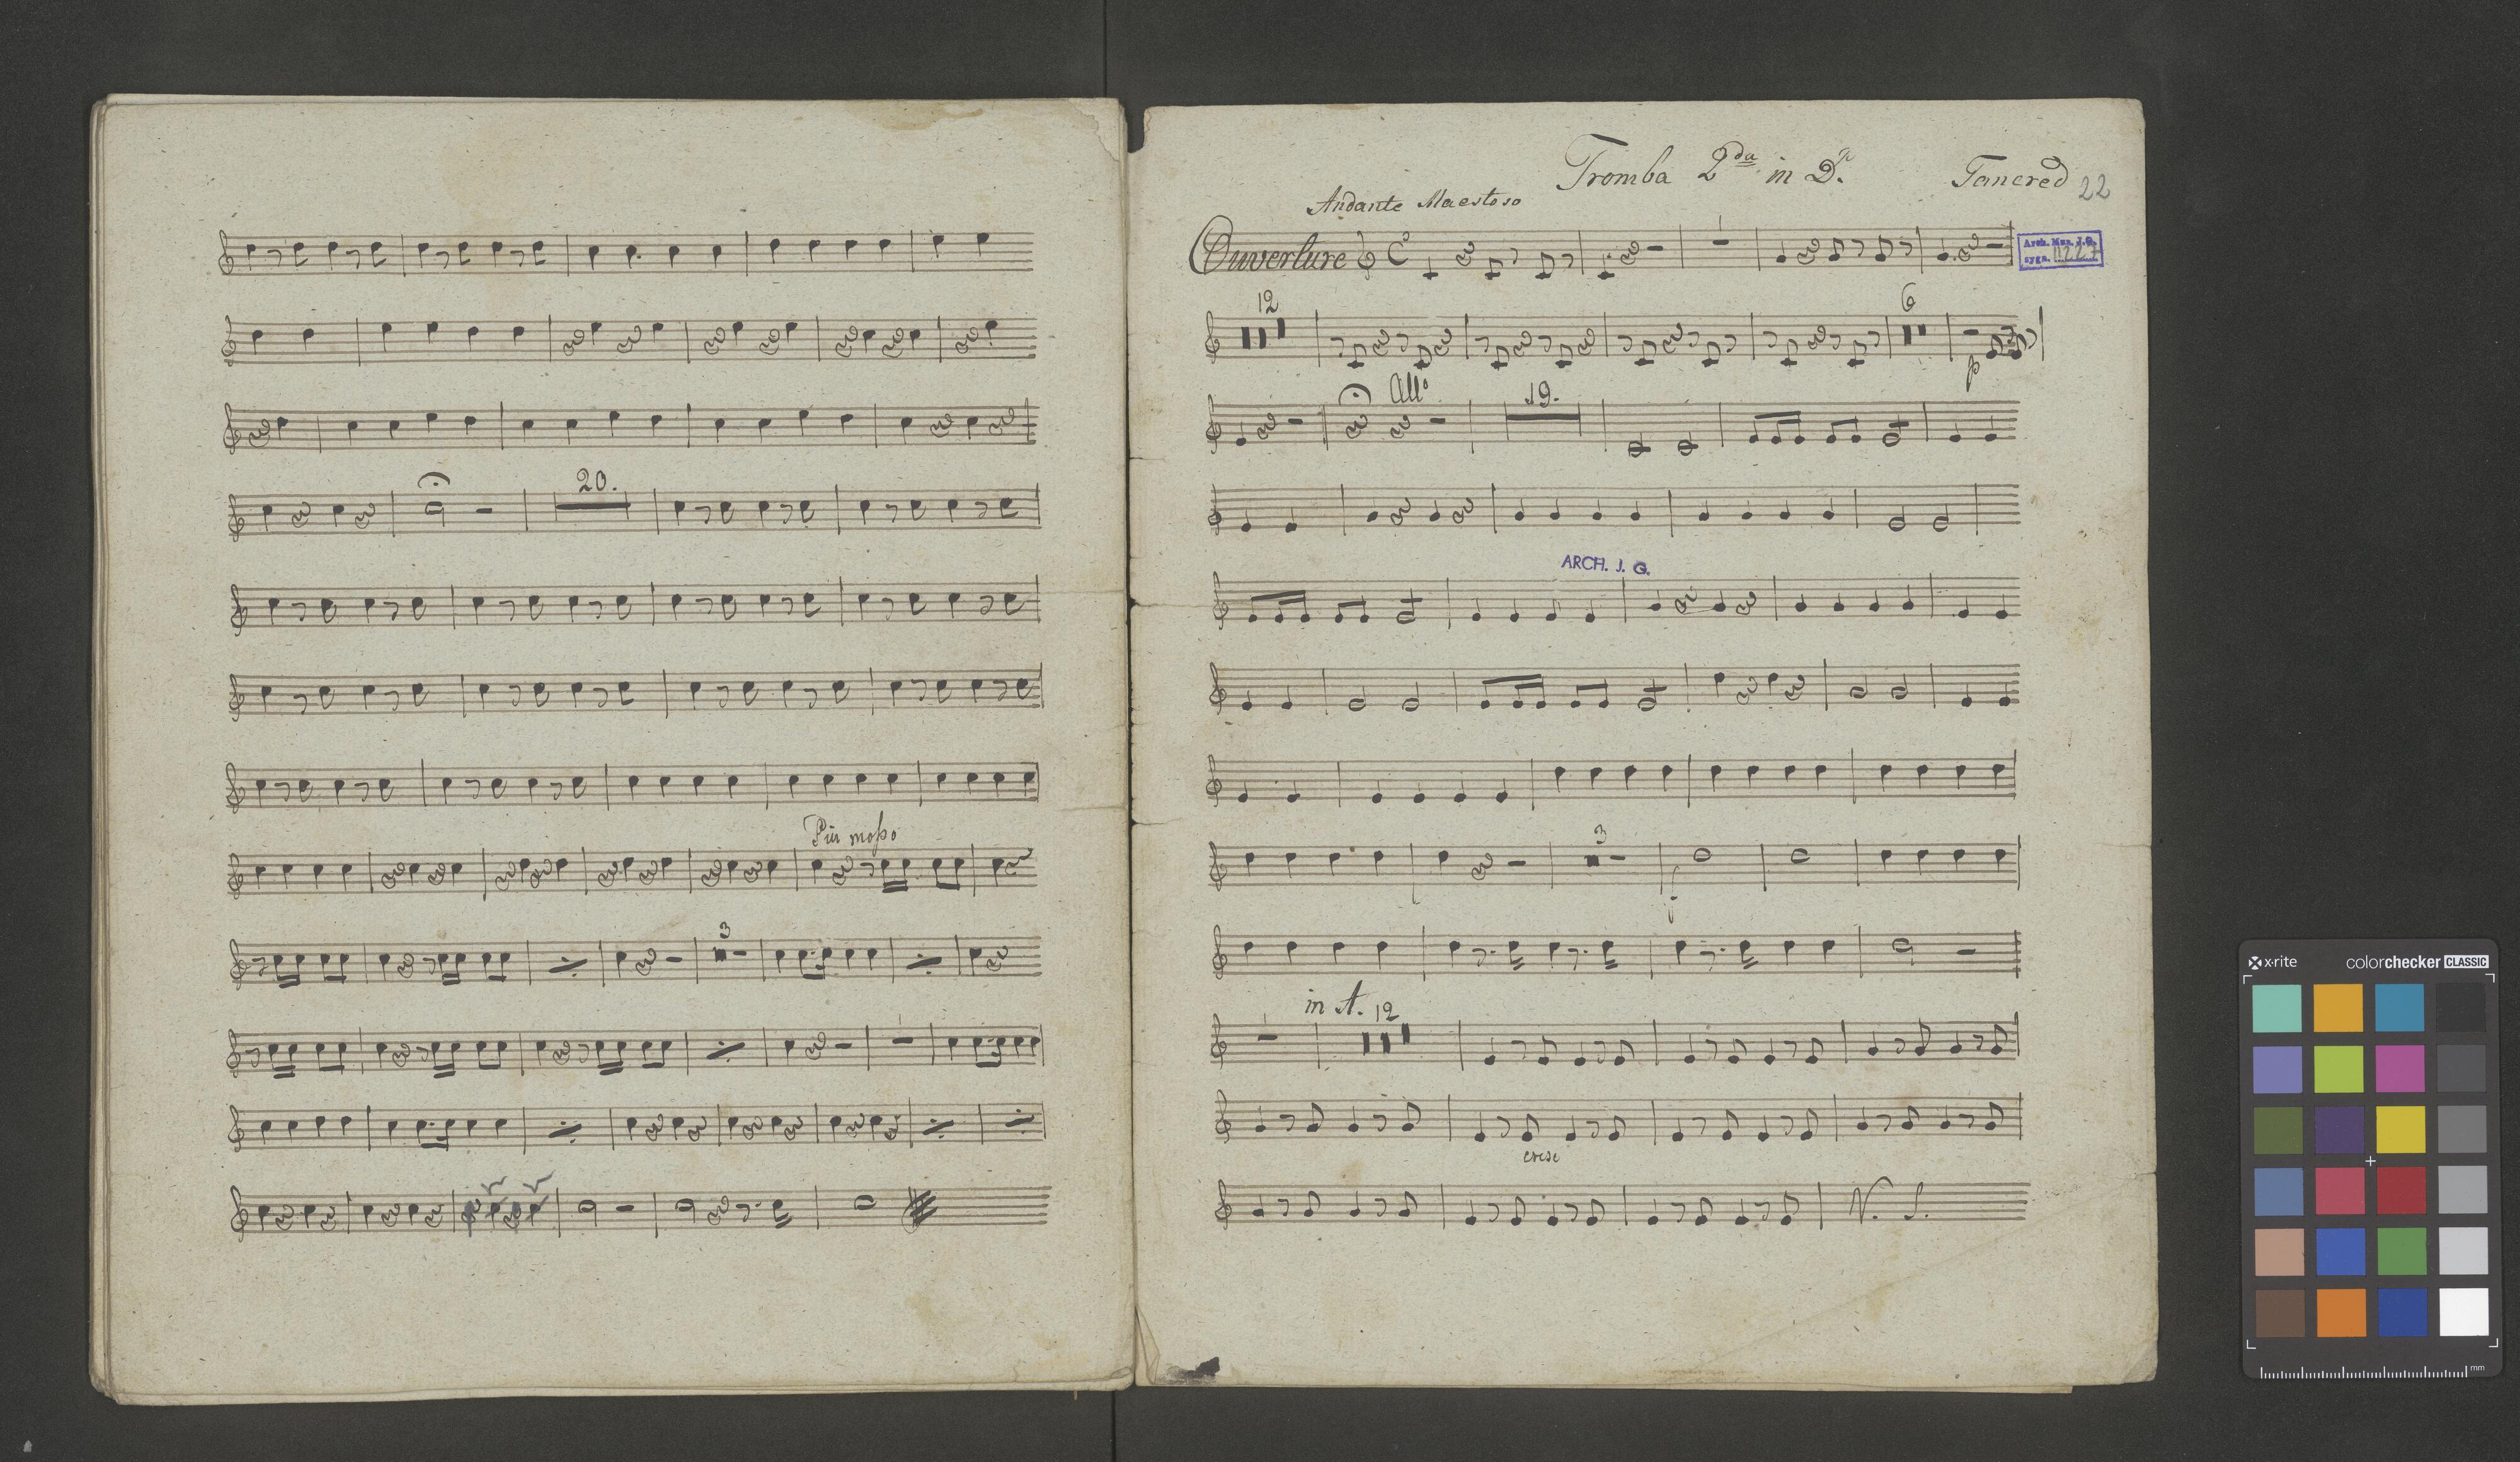 20.
Più moſso
3
Tromba 2da in D.
Tancred
22
Andante Maestoso
Ouverture
Arch. Muz. J.G.
sygn. 11227
12
6
p
Allo
19.
ARCH. J. G.
3
f
in A. 12
cresc
V. S.
x-rite
colorchecker CLASSIC
mm